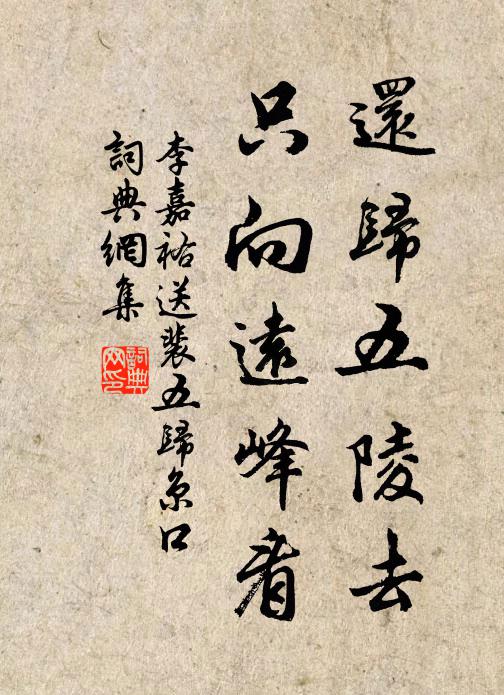 還歸五陵去
只向遠峰看
李嘉祐送裴五歸京口
詞典網集
詞典網印